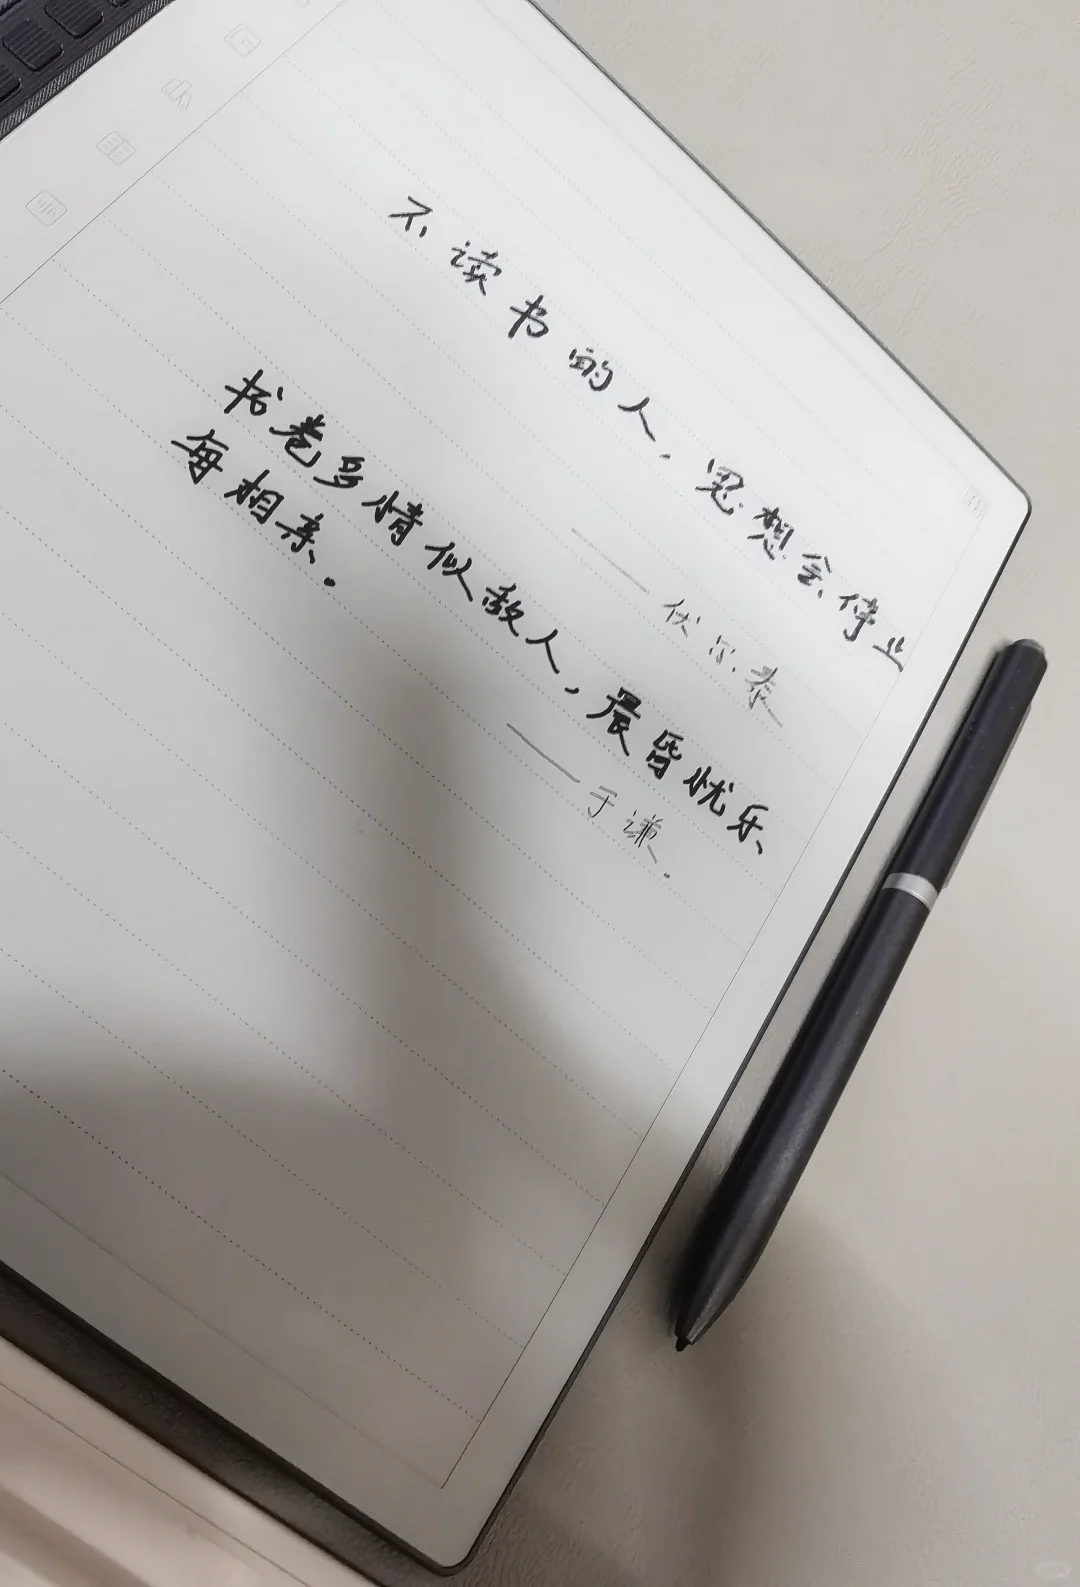 不读书的人，思想会停止
——伏尔泰
书卷多情似故人，晨昏忧乐
每相亲。
——于谦.